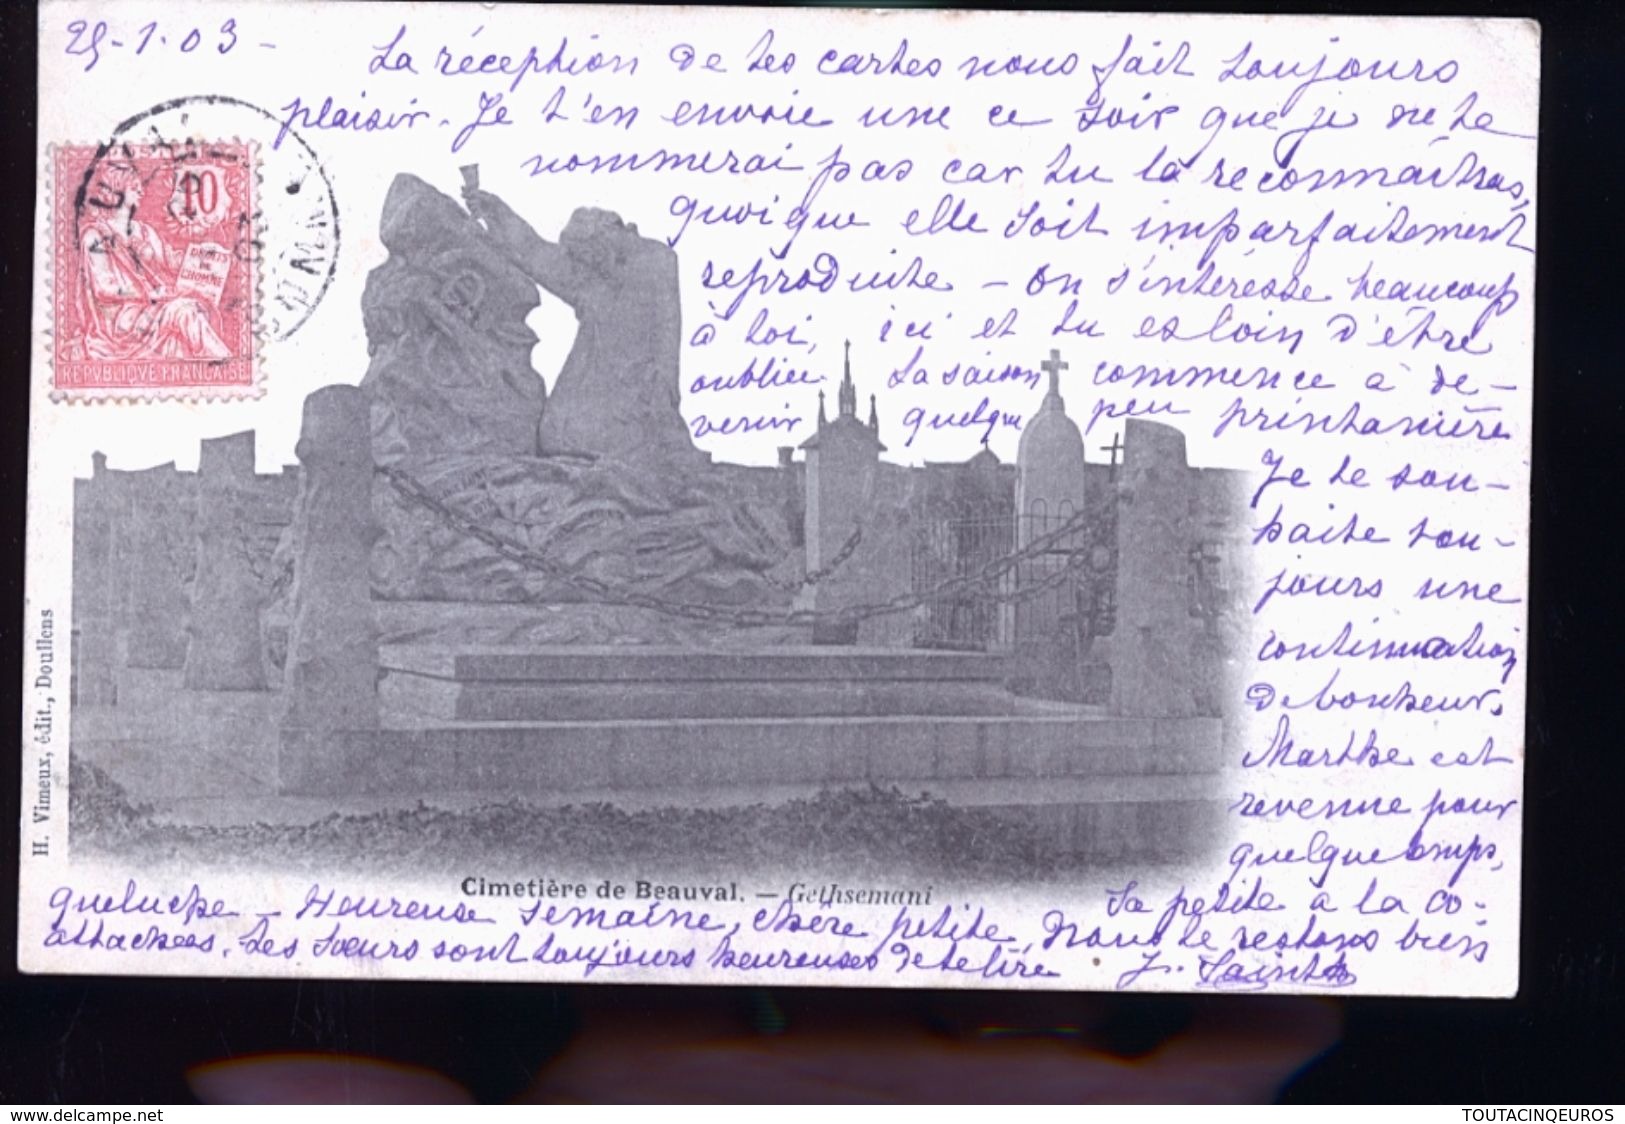 25-1-03 -
La réception de tes cartes nous fait toujours
plaisir. Je t'en envoie une ce soir que je ne te
nommerai pas car tu la reconnaîtras,
quoique elle soit imparfaitement
reproduite - On s'intéresse beaucoup
à toi, ici et tu es loin d'être
oubliée. La saison commence à de-
venir quelque peu printanière
Je te sou-
haite tou-
jours une
continuation
de bonheur.
Marthe est
revenue pour
quelque temps,
Sa petite a la co-
queluche - Heureuse semaine, chère petite, Nous te restons bien
attachées. Les Sœurs sont toujours heureuses de te lire J. Saint
REPVBLIQVE FRANÇAISE
10
DROITS
DE
L'HOMME
H. Vimeux, édit., Doullens
Cimetière de Beauval. - Gethsemani
www.delcampe.net
TOUTACINQEUROS